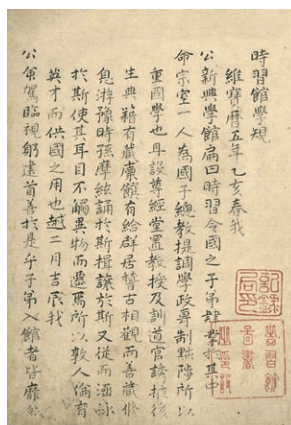 時習館學規
維寶曆五年乙亥春我
公新興學館扁曰時習令國之子弟肄業於其中
命宗室一人為國子總教提調學政專制黜陟所以
重國學也再設尊經堂置教授及訓導官諸
生典籍有藏廩餼有給群居替古相觀而善藏修
息游豫時孫摩絃誦於斯揖讓於斯又從而涵泳
於斯使其耳目不觸異物而遷焉所以敦人倫育
英才而供國之用也越二月吉辰我
公駕臨視躬
首善於是乎子弟入館者皆靡然